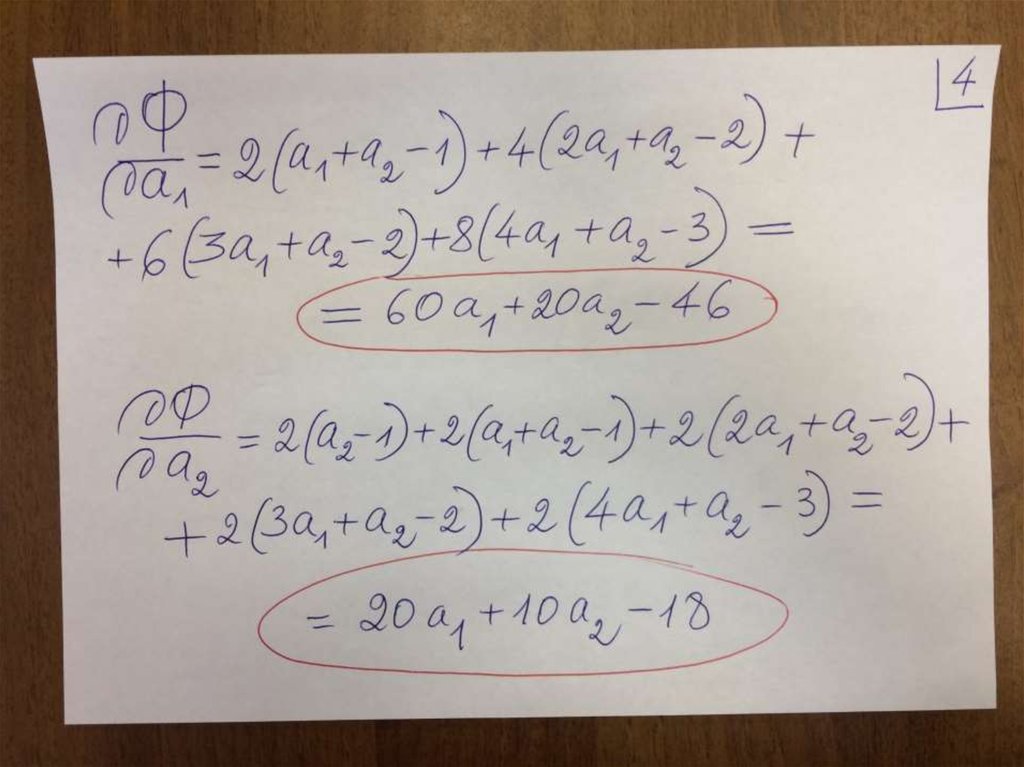 4
∂Φ/∂a₁ = 2(a₁+a₂−1)+4(2a₁+a₂−2)+
+6(3a₁+a₂−2)+8(4a₁+a₂−3)=
= 60a₁+20a₂−46
∂Φ/∂a₂ = 2(a₂−1)+2(a₁+a₂−1)+2(2a₁+a₂−2)+
+2(3a₁+a₂−2)+2(4a₁+a₂−3)=
= 20a₁+10a₂−18